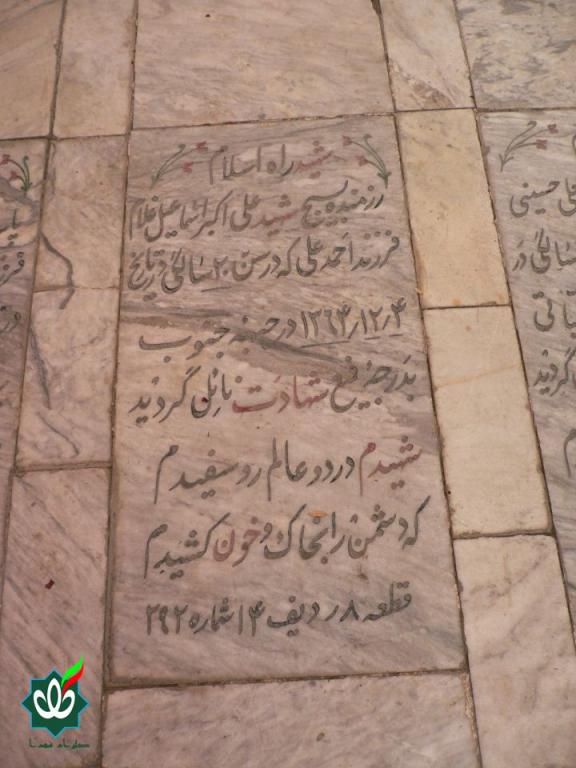 شهید راه اسلام
رزمنده بسیج شهید علی اکبر اسماعیل غلام
فرزند احمد علی که در سن ۲۰ سالگی در تاریخ
۱۳۶۴/۱۲/۴ در جبهه جنوب
بدرجه رفیع شهادت نائل گردید
شهیدم در دو عالم رو سفیدم
که دشمن را بخاک و خون کشیدم
قطعه ۸ ردیف ۱۴ شماره ۲۹۲
حسینی
سالگی در
گردید